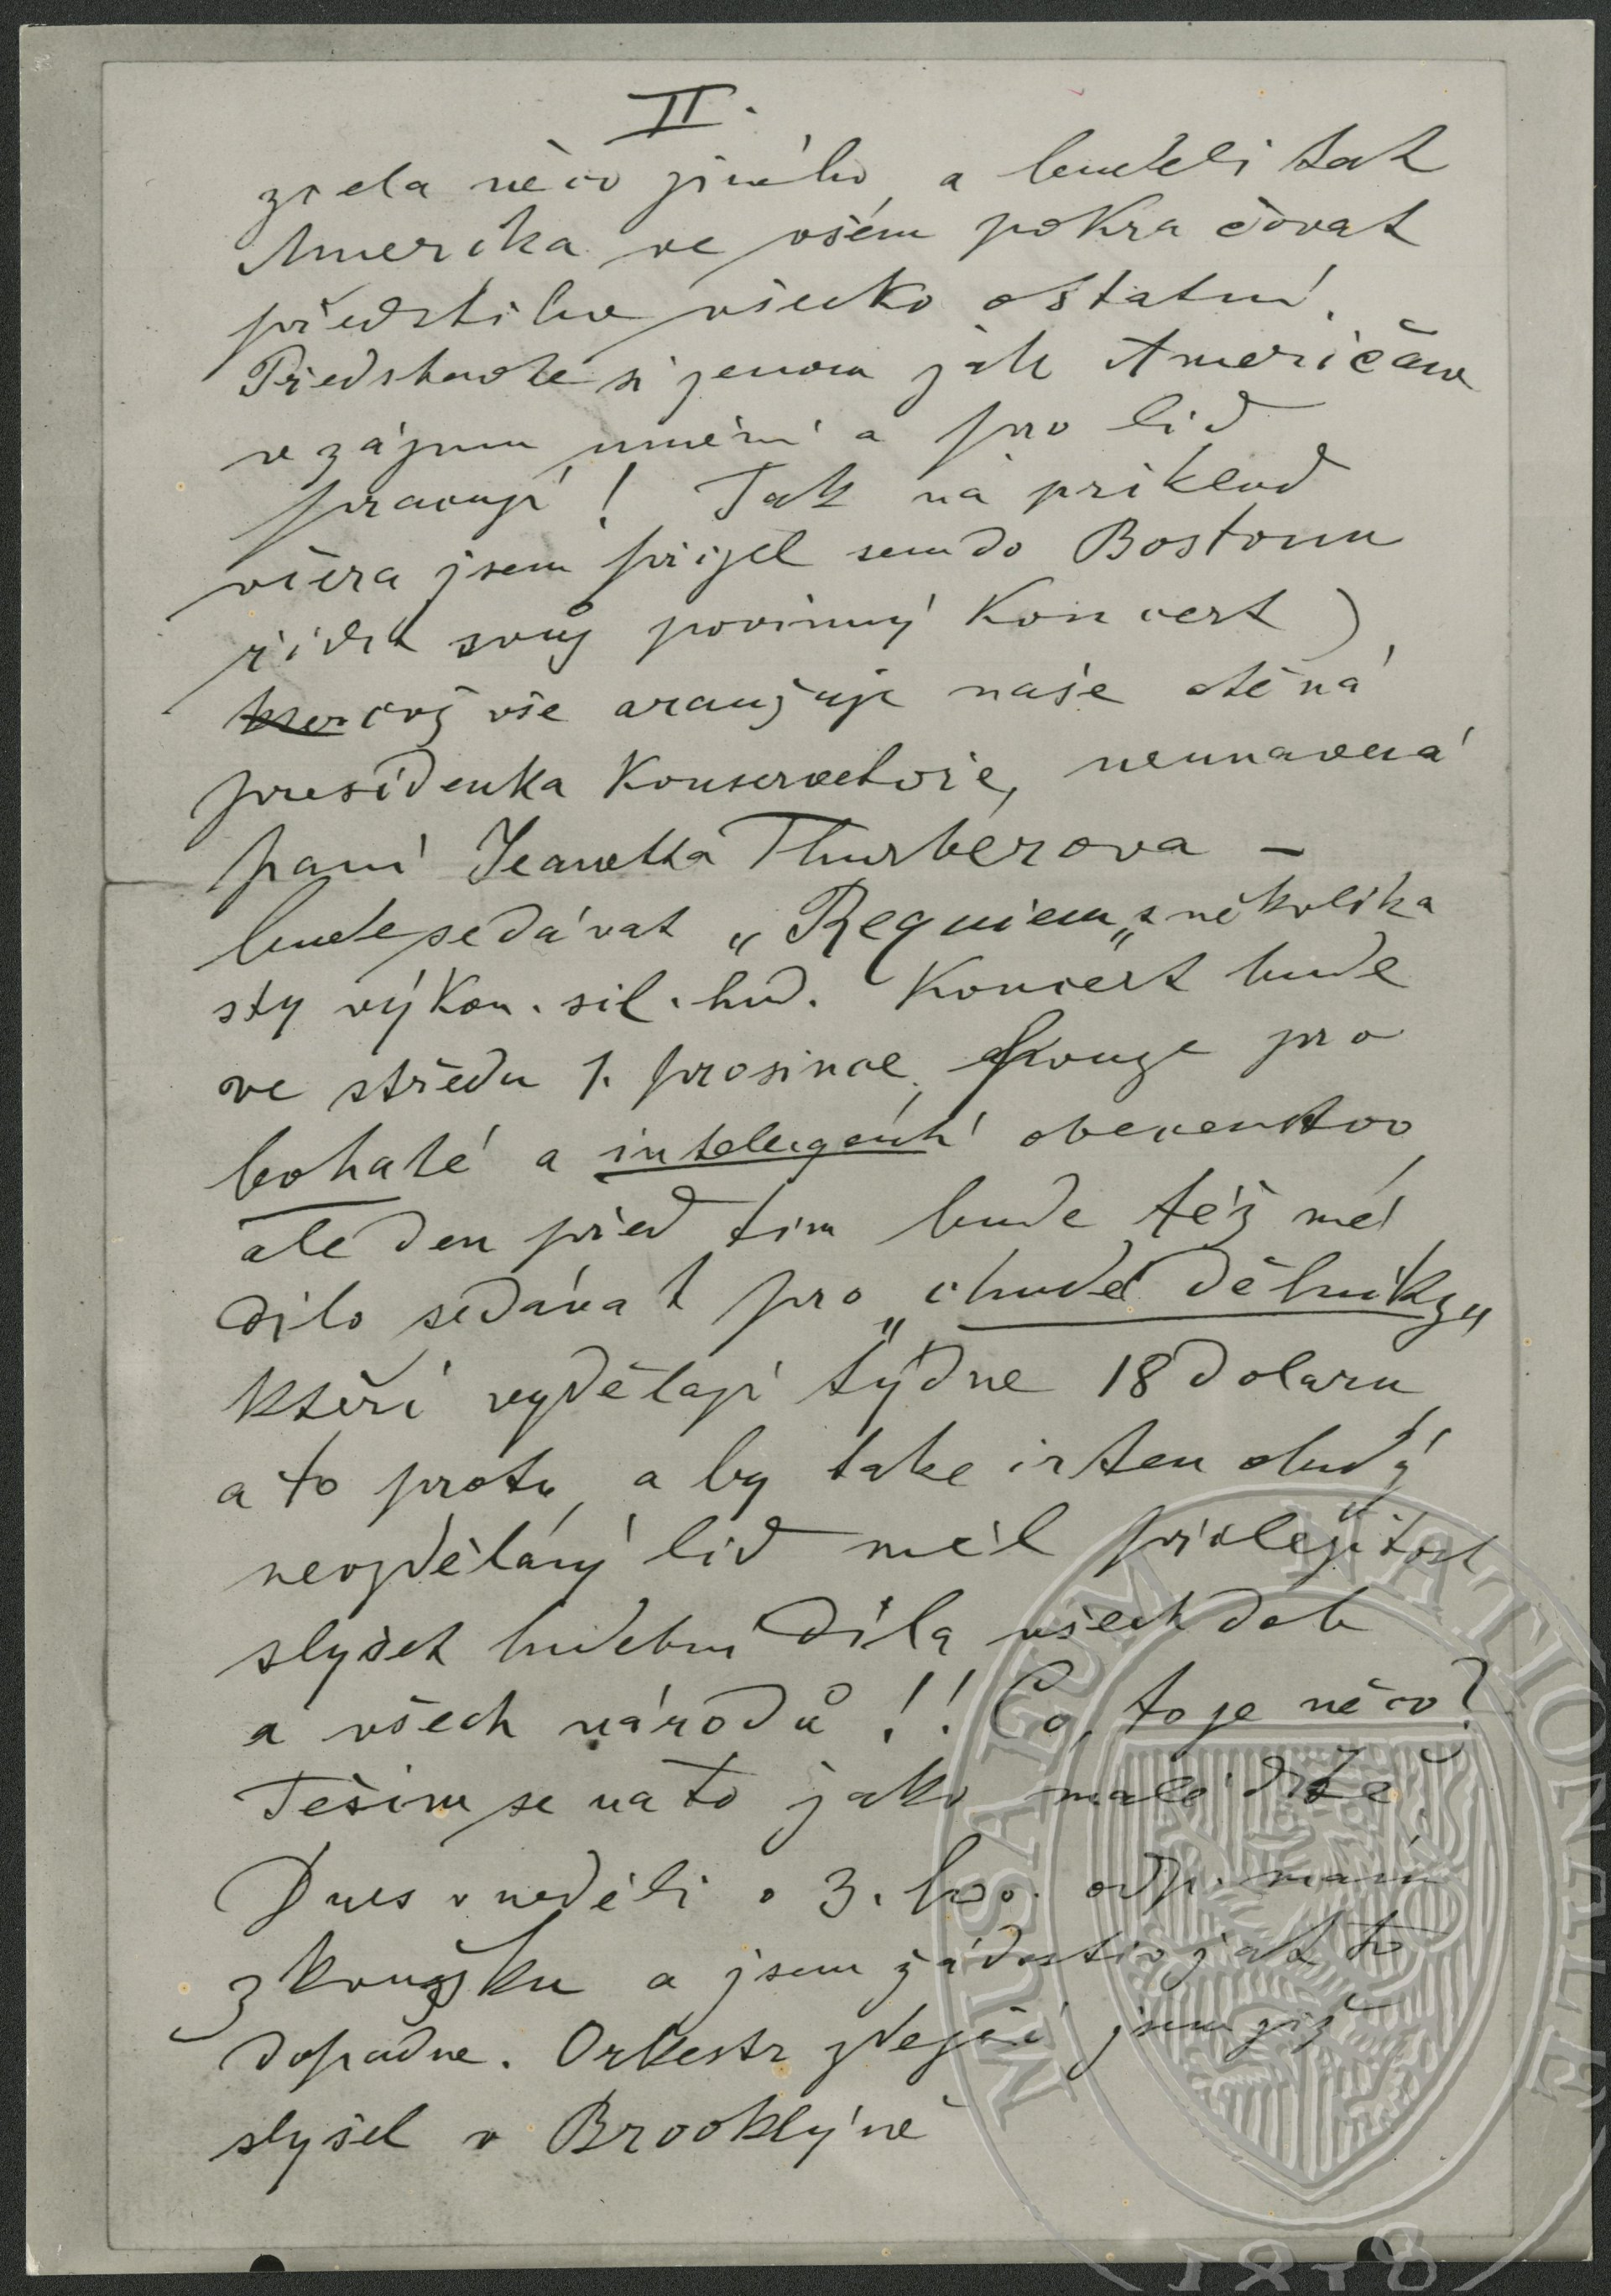 II.
zcela něco jiného, a budeli tak
Amerika ve všém pokračovat
předstihne všecko ostatní.
Představte si jenom jak Američane
v zájmu umění a pro lid
pracují! Tak na přiklad
včera jsem přijel sem do Bostonu
řídit svůj povinný Koncert)
kter což vše aranžuje naše ctěná
presidenka Konservatoře, neunavená
paní Jeanetta Thurberova –
bude se dávat „Requiem„ s několika
sty výkon. sil. hud. Koncert bude
ve středu 1. prosince, pouze pro
bohaté a inteligentní obecenstvo,
ale den před tím bude též mé
dilo se dávat pro „chudé dělníky„
kteří vydělají týdne 18 dolaru,
a to proto, aby take i ten chudý
nevzdělaný lid měl příležitost
slyšet hudební dila všech dob
a všech národů!! Co, to je něco?
Těšim se na to jako malé dítě.
Dnes v neděli o 3. hod. odp. mám
zkoužku a jsem žádostiv jak to
dopadne. Orkestr zdejší jsem již
slyšel v Brooklýně
MUSAEUM NATIONALE
1818